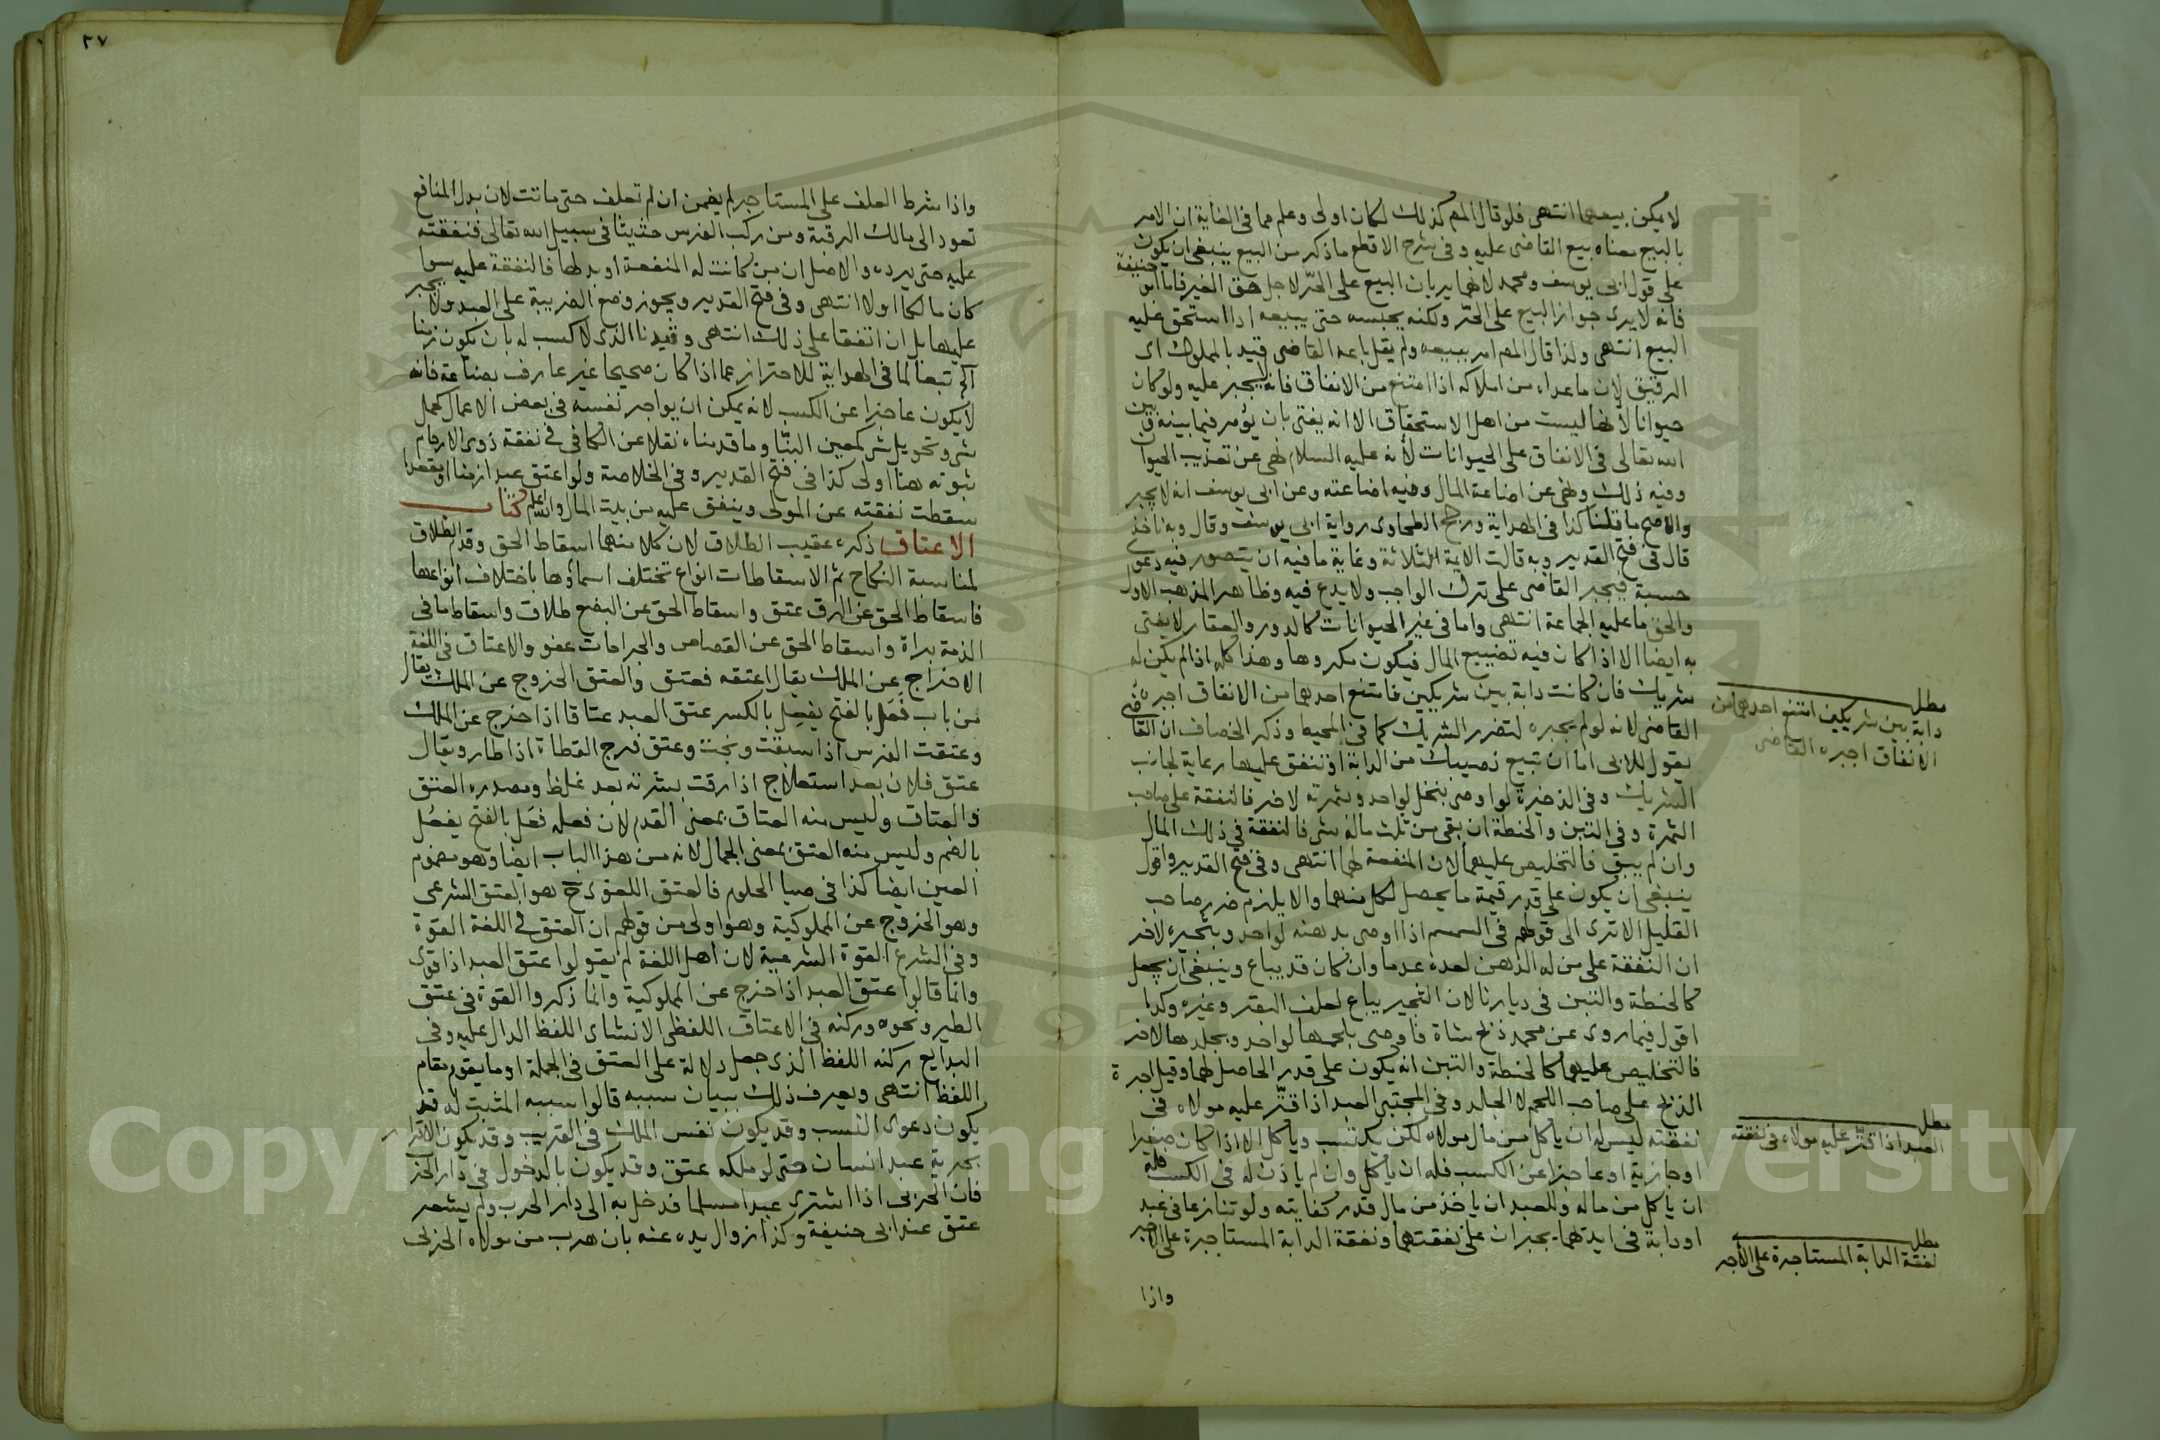 لا يمكن بيعهما انتهى فلو قال المص كذلك لكان اولى وعلم مما فى الغاية ان الامر
بالبيع معناه بيع القاضى عليه وفى شرح الاقطع ما ذكر من البيع ينبغى ان يكون
على قول ابى يوسف ومحمد لانهما يريان البيع على الحرّ لاجل حق الغير فاما ابو حنيفة
فانه لا يرى جواز البيع على الحرّ ولكنه يحبسه حتى يبيعه اذا استحق عليه
البيع انتهى ولذا قال المص امر ببيعه ولم يقل باعه القاضى قيد بالمملوك اى
الرقيق لان ما عداه من املاكه اذا امتنع من الانفاق فانه لا يجبر عليه ولو كان
حيوانا لانها ليست من اهل الاستحقاق الا انه يفتى بان يؤمر فيما بينه وبين
الله تعالى فى الانفاق على الحيوانات لأنه عليه السلام نهى عن تعذيب الحيوان
وفيه ذلك ونهى عن اضاعة المال وفيه اضاعته وعن ابى يوسف انه لا يجبر
والاصح ما قلنا كذا فى الهداية ورجح الطحاوى رواية ابى يوسف وقال وبه ناخذ
قال فى فتح القدير وبه قالت الايمة الثلاثة وغاية ما فيه ان يتصور فيه دعوى
حسبة فيجبر القاضى على ترك الواجب ولا يدع فيه وظاهر المذهب الاول
والحق ما عليه الجماعة انتهى واما فى غير الحيوانات كالدور والعقار لا يفتى
به ايضا الا اذا كان فيه تضييع المال فيكون مكروها وهذا كله اذا لم يكن له
شريك فان كانت دابة بين شريكين فامتنع احدهما من الانفاق اجبره
القاضى لانه لو لم يجبره لتضرر الشريك كما فى المحيط وذكر الخصاف ان القاضى
يقول للابى اما ان تبيع نصيبك من الدابة او تنفق عليها رعاية لجانب
الشريك وفى الذخيرة لو اوصى بنخل لواحد وبثمرته لاخر فالنفقة على صاحب
الثمرة وفى التبن والحنطة ان بقى من ثلث ماله شى فالنفقة فى ذلك المال
وان لم يبق فالتخليص عليهما لان المنفعة لهما انتهى وفى فتح القدير واقول
ينبغى ان يكون على قدر قيمة ما يحصل لكل منهما والا يلزم ضرر صاحب
القليل الا ترى الى قولهم فى السمسم اذا اوصى بدهنه لواحد وبثجيره لاخر
ان النفقة على من له الدهن لعده عدما وان كان قد يباع وينبغى ان يجعل
كالحنطة والتبن فى ديارنا لان الثجير يباع لعلف البقر وغيره وكذا
اقول فيما روى عن محمد ذبح شاة فاوصى بلحمها لواحد وبجلدها لاخر
فالتخليص عليهما كالحنطة والتبن انه يكون على قدر الحاصل لهما وقيل اجرة
الذبح على صاحب اللحم لا الجلد وفى المجتبى العبد اذا قتّر عليه مولاه فى
نفقته ليس له ان ياكل من مال مولاه لكن يكتسب وياكل الا اذا كان صغيرا
او جارية او عاجزا عن الكسب فله ان ياكل وان لم ياذن له فى الكسب فله
ان ياكل من ماله وللعبد ان ياخذ من مال قدر كفايته ولو تنازعا فى عبد
او دابة فى ايديهما يجبران على نفقتهما ونفقة الدابة المستاجرة على الاجر
واذا
مطلب
دابة بين شريكين امتنع احدهما من
الانفاق اجبره القاضى
مطلب
العبد اذا قتّر عليه مولاه فى نفقته
مطلب
نفقة الدابة المستاجرة على الأجر
٣٧
واذا شرط العلف على المستاجر لم يضمن ان لم تعلف حتى ماتت لان بدل المنافع
تعود الى مالك الرقبة ومن ركب الفرس حثيثا فى سبيل الله تعالى فنفقته
عليه حتى يرده والاصل ان من كانت له المنفعة او بدلها فالنفقة عليه سوا
كان مالكا او لا انتهى وفى فتح القدير ويجوز وضع الضريبة على العبد ولا يجبر
عليها بل ان اتفقا على ذلك انتهى وقيدنا الذى لا كسب له بان يكون زمنا
آلخ تبعا لما فى الهداية للاحتراز عما اذا كان صحيحا غير عارف بصناعة فانه
لا يكون عاجزا عن الكسب لانه يمكن ان يواجر نفسه فى بعض الاعمال كحمل
شى وتحويل شى كمعين البنّا وما قدمناه نقلا عن الكافى فى نفقة ذوى الارحام
ثبوته هنا اولى كذا فى فتح القدير وفى الخلاصة ولو اعتق عبدا زمنا او مقعدا
سقطت نفقته عن المولى وينفق عليه من بيت المال والله اعلم كتاب
الاعتاق ذكره عقيب الطلاق لان كلا منهما اسقاط الحق وقدم الطلاق
لمناسبة النكاح ثم الاسقاطات انواع تختلف اسماؤها باختلاف انواعها
فاسقاط الحق عن الرق عتق واسقاط الحق عن البضع طلاق واسقاط ما فى
الذمة براة واسقاط الحق عن القصاص والجراحات عفو والاعتاق فى اللغة
الاخراج عن الملك يقال اعتقه فعتق والعتق الخروج عن الملك يقال
من باب فَعَل بالفتح يفعِل بالكسر عتق العبد عتاقا اذا خرج عن الملك
وعتقت الفرس اذا سبقت ونجت وعتق فرج القطاة اذا طار ويقال
عتق فلان بعد استعلاج اذا رقت بشرته بعد غلظ ومصدره العتق
والعتاق وليس منه العتاق بمعنى القدم لان فعله فعَل بالفتح يفعُل
بالضم وليس منه العتق بمعنى الجمال لانه من هذا الباب ايضا وهو مضموم
العين ايضا كذا فى ضيا الحلوم فالعتق اللغوى ح هو العتق الشرعى
وهو الخروج عن المملوكية وهو اولى من قولهم ان العتق فى اللغة القوة
وفى الشرع القوة الشرعية لان اهل اللغة لم يقولوا عتق العبد اذا قوى
وانما قالوا عتق العبد اذا خرج عن المملوكية وانما ذكروا القوة فى عتق
الطير ونحوه وركنه فى الاعتاق اللفظى الانشاى اللفظ الدال عليه وفى
البدايع ركنه اللفظ الذى جعل دلالة على العتق فى الجملة او ما يقوم مقام
اللفظ انتهى ويعرف ذلك ببيان سببه قالوا سببه المثبت له قد
يكون دعوى النسب وقد يكون نفس الملك فى القريب وقد يكون الاقرار
بحرية عبد انسان حتى لو ملكه عتق وقد يكون بالدخول فى دار الحرب
فان الحربى اذا اشترى عبدا مسلما فدخل به الى دار الحرب ولم يشعر
عتق عند ابى حنيفة وكذا زوال يده عنه بان هرب من مولاه الحربى
Copyright © King Saud University